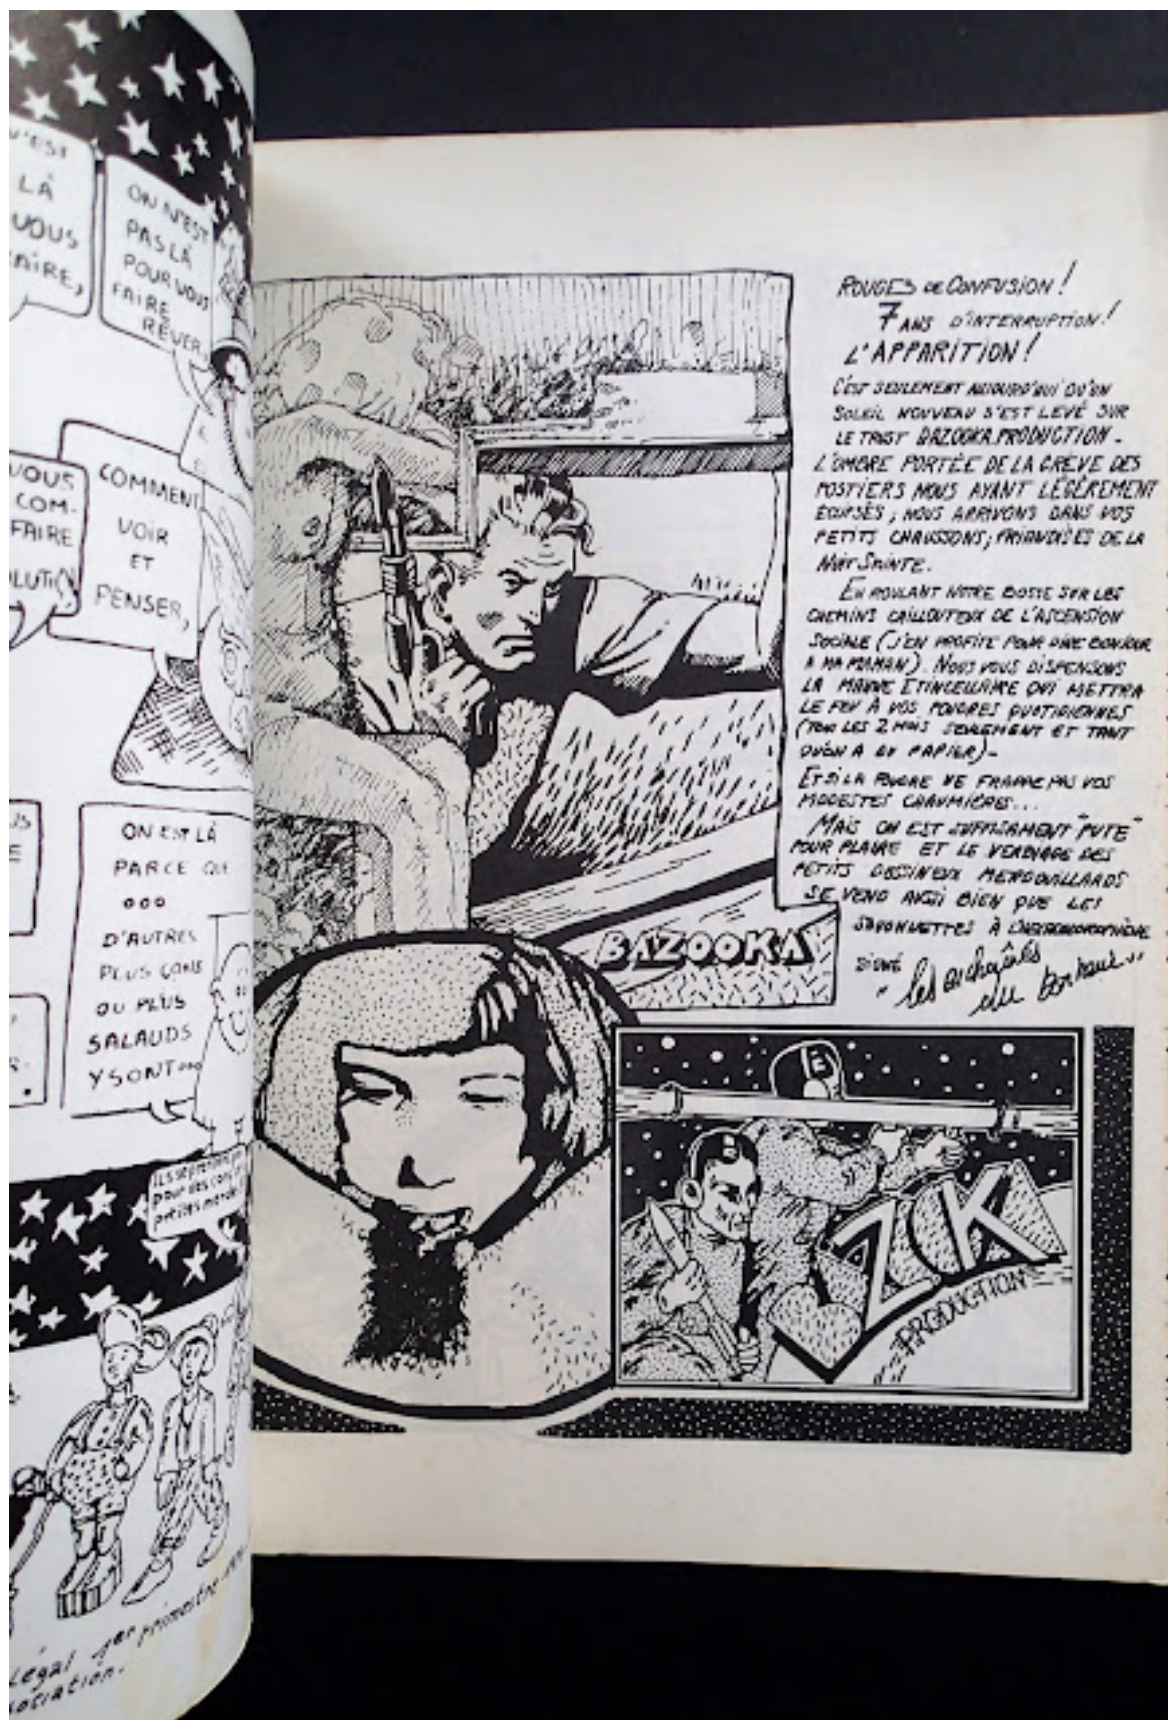 N'EST
LÀ
VOUS
FAIRE,
ON N'EST
PAS LÀ
POUR VOUS
FAIRE
RÊVER,
VOUS
COM-
FAIRE
COMMENT
VOIR
ET
PENSER,
ON EST LÀ
PARCE QUE
ooo
D'AUTRES
PLUS CONS
OU PLUS
SALAUDS
Y SONT ooo
ILS se prennent
pour des cons
petites merdes
Légal 1er trimestre
ROUGES DE CONFUSION !
7 ANS D'INTERRUPTION !
L'APPARITION !
C'EST SEULEMENT AUJOURD'HUI QU'UN
SOLEIL NOUVEAU S'EST LEVÉ SUR
LE TRUST BAZOOKA PRODUCTION -
L'OMBRE PORTÉE DE LA GRÈVE DES
POSTIERS NOUS AYANT LÉGÈREMENT
ECLIPSÉS ; NOUS ARRIVONS DANS VOS
PETITS CHAUSSONS ; FRIANDISES DE LA
NUIT SAINTE.
EN ROULANT NOTRE BOSSE SUR LES
CHEMINS CAILLOUTEUX DE L'ASCENSION
SOCIALE (J'EN PROFITE POUR DIRE BONJOUR
A MA MAMAN). NOUS VOUS DISPENSONS
LA MAUVE ETINCELLAIRE QUI METTRA
LE FEU À VOS POUDRES QUOTIDIENNES
(TOUS LES 2 MOIS SEULEMENT ET TANT
QU'ON A DU PAPIER) -
ET SI LA FOUDRE NE FRAPPE PAS VOS
MODESTES CHAUMIÈRES...
MAIS ON EST SUFFISAMMENT "PUTE"
POUR PLAIRE ET LE VERBIAGE DES
PETITS DESSINEUX MERDOUILLARDS
SE VEND AUSSI BIEN QUE LES
SAVONNETTES À L'HEXACHLOROPHÈNE
SIGNÉ
"les archanges du bonheur"
BAZOOKA
ZK
PRODUCTION